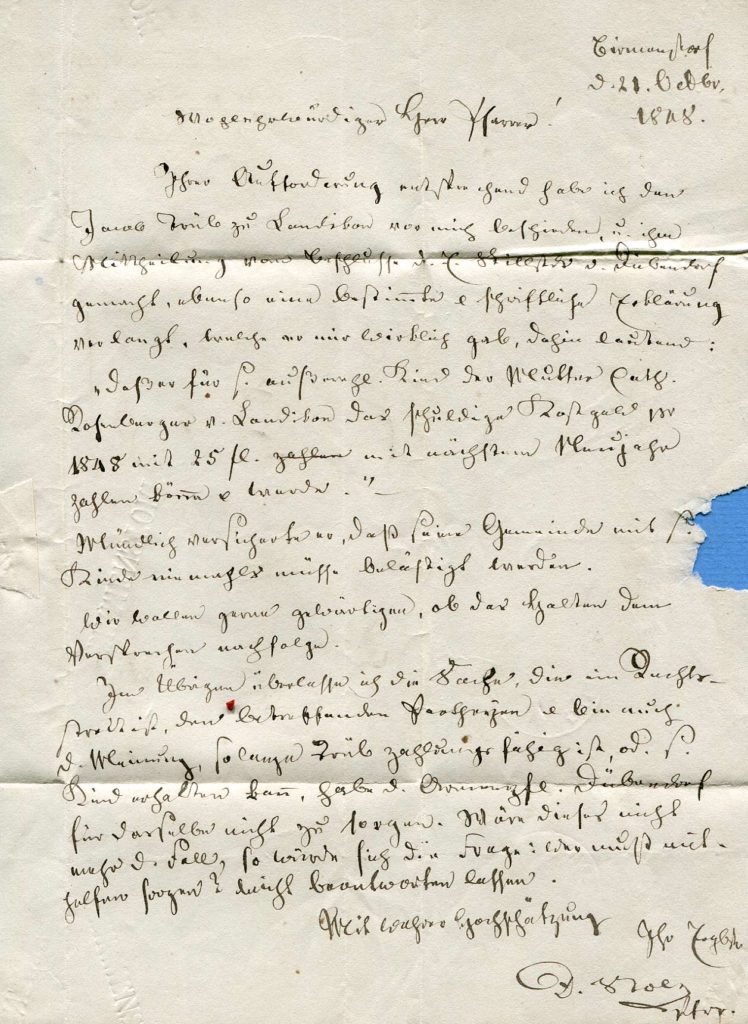 Birmenstorf
d. 21. Octbr.
1848.
Wohlehrwürdiger Herr Pfarrer!
Ihrer Aufforderung entsprechend habe ich den
Jacob Trüb zu Landikon vor mich beschieden, u. ihm
Mittheilung vom Beschlusse d. E. Stillstds d. Dübendorf
gemacht, ebenso eine bestimmte & schriftliche Erklärung
verlangt, welche er mir wirklich gab, dahin lautend:
„daß er für s. außerehl. Kind der Mutter Cath.
v. Landikon das schuldige Kostgeld pr
1848 mit 25 fl. zahlen mit nächstem Neujahr
zahlen könne & werde."
Mündlich versicherte er, daß seine Gemeinde mit s.
Kinde niemahls müsse belästigt werden.
Wir wollen gerne gewärtigen, ob das Halten dem
Versprechen nachfolge.
Im Übrigen überlasse ich die Sache, die im Rechts-
streit ist, den betreffenden Partheyen & bin auch
d. Meinung, solange Trüb zahlungsfähig ist, od. s.
Kind erhalten kann, habe d. Armenpfl. Dübendorf
für dasselbe nicht zu sorgen. Wäre dieses nicht
mehr d. Fall, so würde sich die Frage: wer muß mit-
helfen sorgen? leicht beantworten lassen.
Mit wahrer Hochschätzung
Ihr Ergbstr
Pfr.